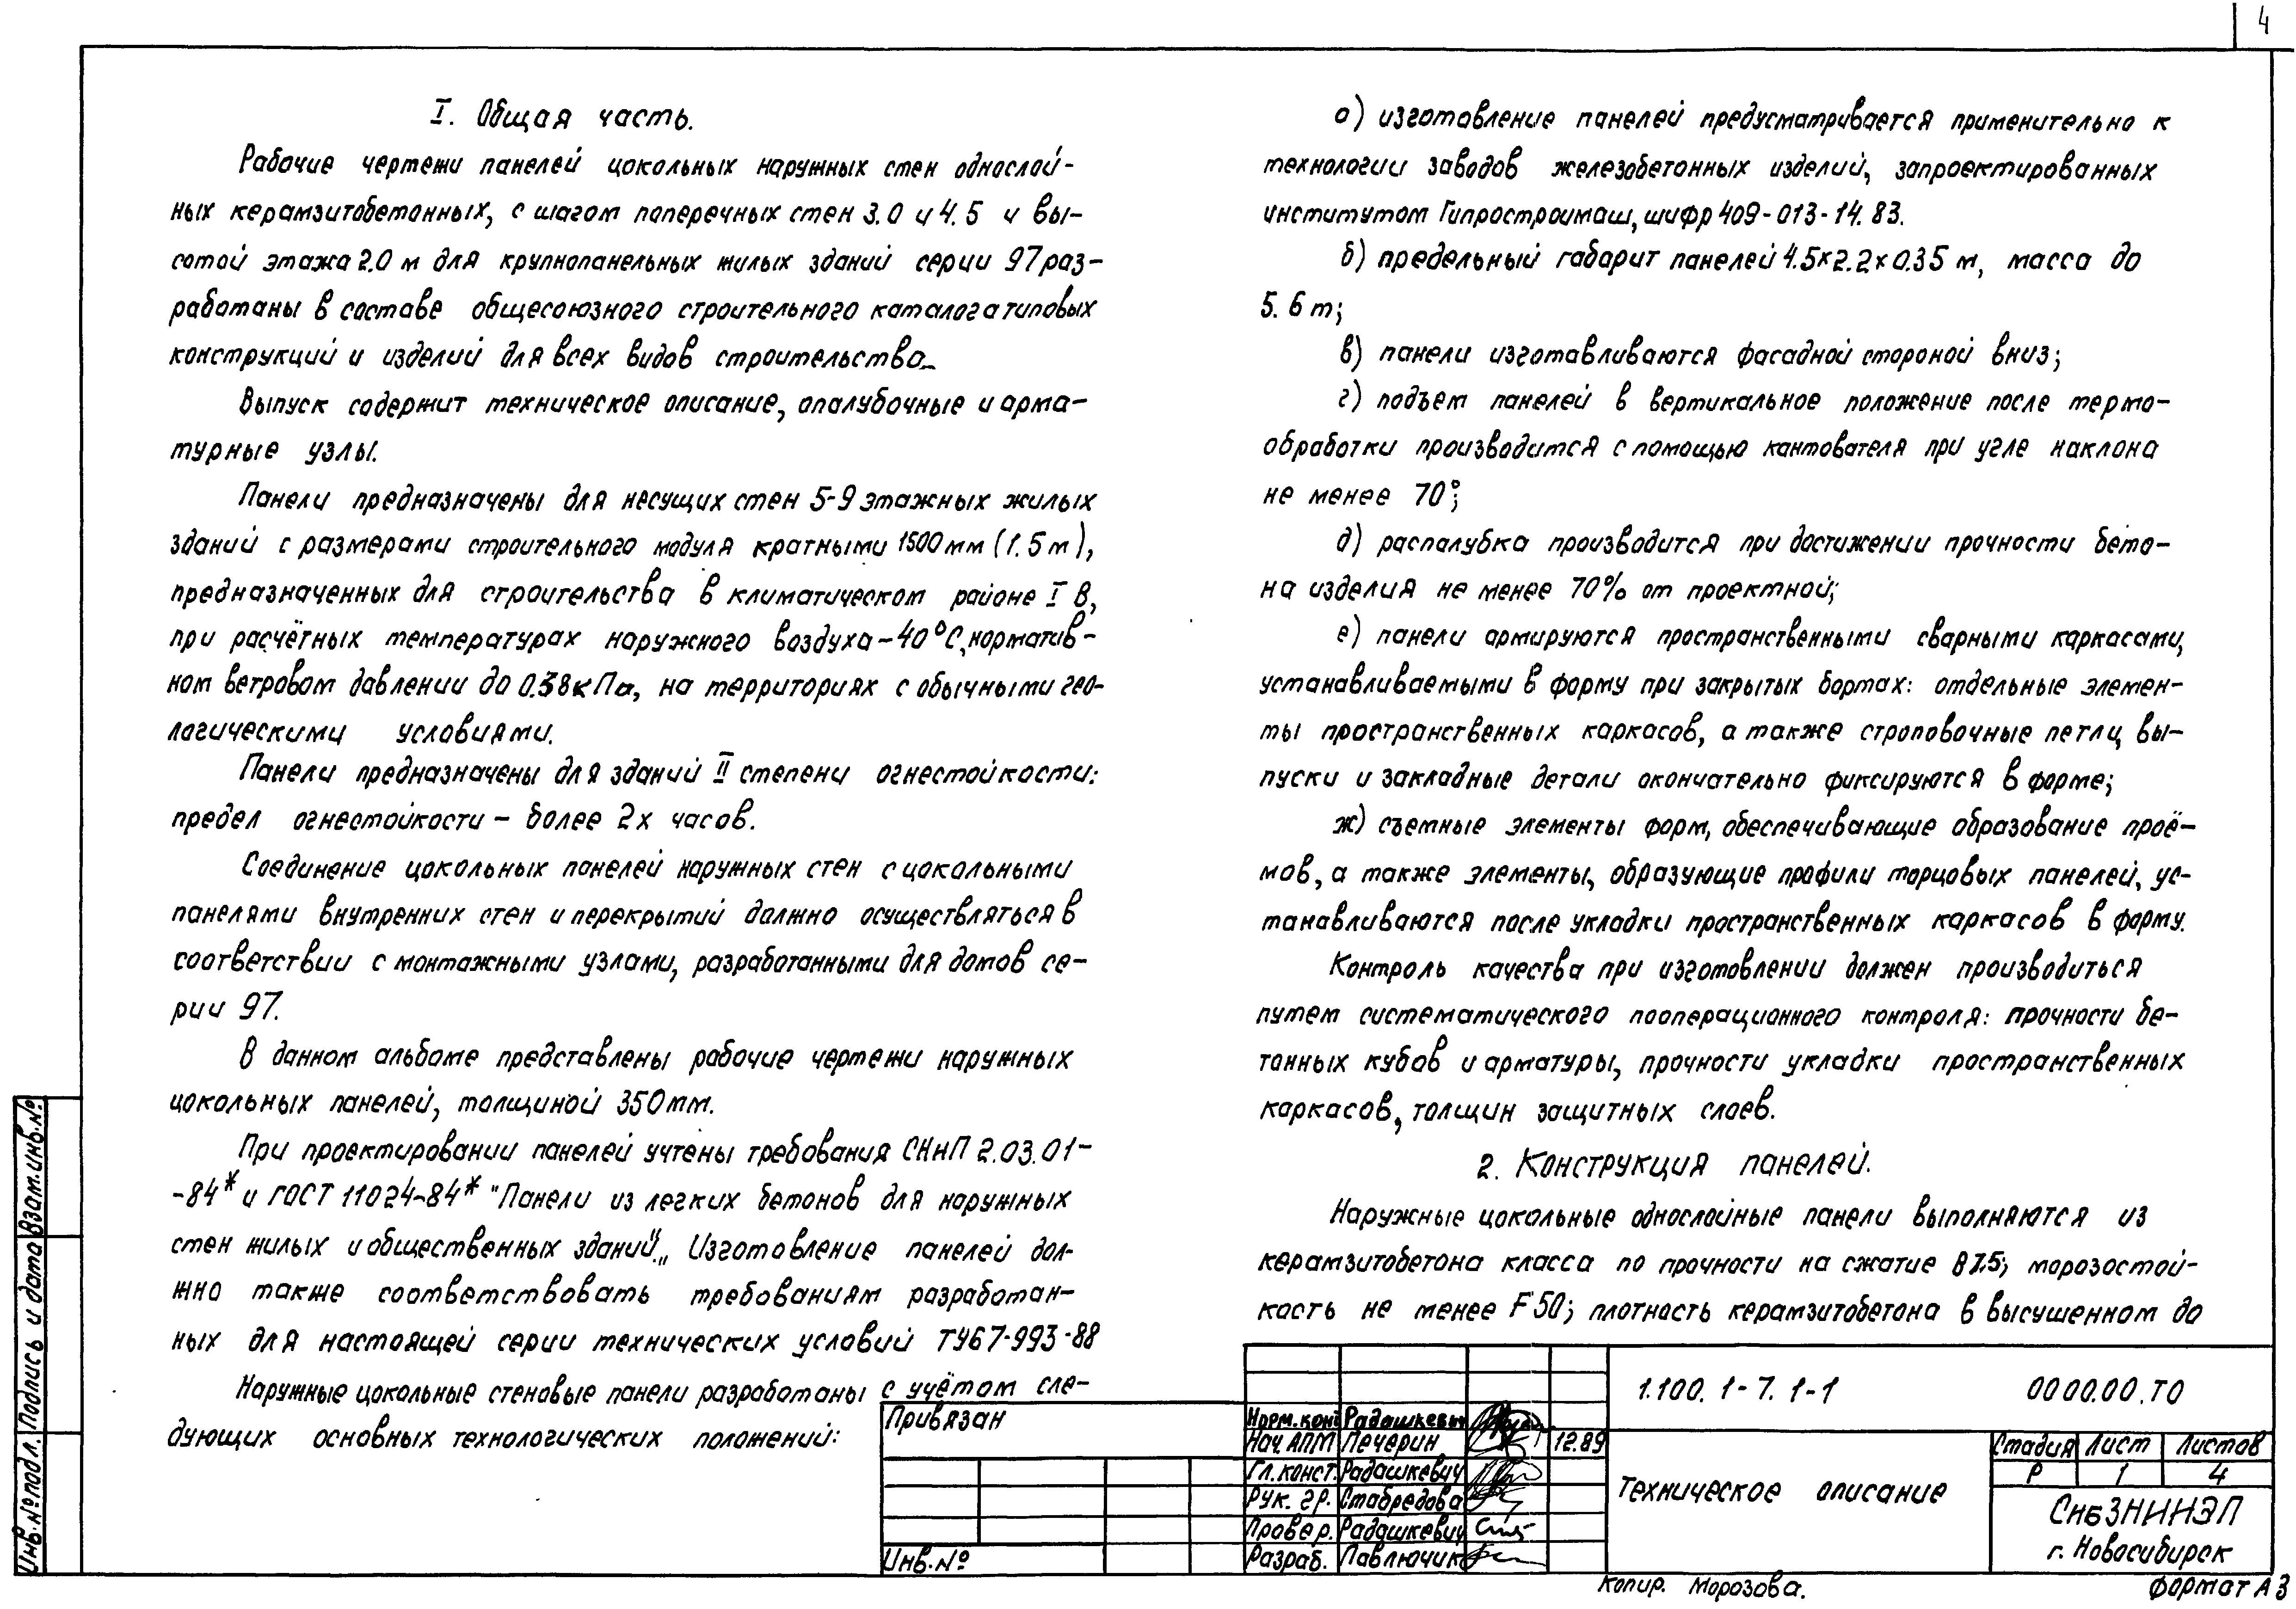 4
I. Общая часть.
Рабочие чертежи панелей цокольных наружных стен однослой-
ных керамзитобетонных, с шагом поперечных стен 3.0 и 4.5 и вы-
сотой этажа 2.0 м для крупнопанельных жилых зданий серии 97 раз-
работаны в составе общесоюзного строительного каталога типовых
конструкций и изделий для всех видов строительства.
Выпуск содержит техническое описание, опалубочные и арма-
турные узлы.
Панели предназначены для несущих стен 5-9 этажных жилых
зданий с размерами строительного модуля кратными 1500мм (1.5м),
предназначенных для строительства в климатическом районе I В,
при расчётных температурах наружного воздуха -40°С, норматив-
ном ветровом давлении до 0.38кПа, на территориях с обычными гео-
логическими условиями.
Панели предназначены для зданий II степени огнестойкости:
предел огнестойкости – более 2х часов.
Соединение цокольных панелей наружных стен с цокольными
панелями внутренних стен и перекрытий должно осуществляться в
соответствии с монтажными узлами, разработанными для домов се-
рии 97.
В данном альбоме представлены рабочие чертежи наружных
цокольных панелей, толщиной 350мм.
При проектировании панелей учтены требования СНиП 2.03.01-
-84* и ГОСТ 11024-84* "Панели из легких бетонов для наружных
стен жилых и общественных зданий". Изготовление панелей дол-
жно также соответствовать требованиям разработан-
ных для настоящей серии технических условий ТУ67-993-88
Наружные цокольные стеновые панели разработаны с учётом сле-
дующих основных технологических положений:
а) изготовление панелей предусматривается применительно к
технологии заводов железобетонных изделий, запроектированных
институтом Гипростроммаш, шифр 409-013-14.83.
б) предельный габарит панелей 4.5×2.2×0.35 м, масса до
5.6 т;
в) панели изготавливаются фасадной стороной вниз;
г) подъем панелей в вертикальное положение после термо-
обработки производится с помощью кантователя при угле наклона
не менее 70°;
д) распалубка производится при достижении прочности бето-
на изделия не менее 70% от проектной;
е) панели армируются пространственными сварными каркасами,
устанавливаемыми в форму при закрытых бортах: отдельные элемен-
ты пространственных каркасов, а также строповочные петли, вы-
пуски и закладные детали окончательно фиксируются в форме;
ж) съемные элементы форм, обеспечивающие образование проё-
мов, а также элементы, образующие профили торцовых панелей, ус-
танавливаются после укладки пространственных каркасов в форму.
Контроль качества при изготовлении должен производиться
путем систематического пооперационного контроля: прочности бе-
тонных кубов и арматуры, прочности укладки пространственных
каркасов, толщин защитных слоев.
2. Конструкция панелей.
Наружные цокольные однослойные панели выполняются из
керамзитобетона класса по прочности на сжатие В 7.5; морозостой-
кость не менее F 50; плотность керамзитобетона в высушенном до
Привязан
Инв.№
Норм.конт Радашкевич
Нач. АПМ Печерин 12.89
Гл.конст. Радашкевич
Рук. гр. Стабредова
Провер. Радашкевич
Разраб. Павлючик
1.100.1-7.1-1 0000.00.ТО
Техническое описание
Стадия Лист Листов
Р 1 4
СибЗНИИЭП
г. Новосибирск
Копир. Морозова.
Формат А3
Инв.№подл. Подпись и дата Взам.инв.№